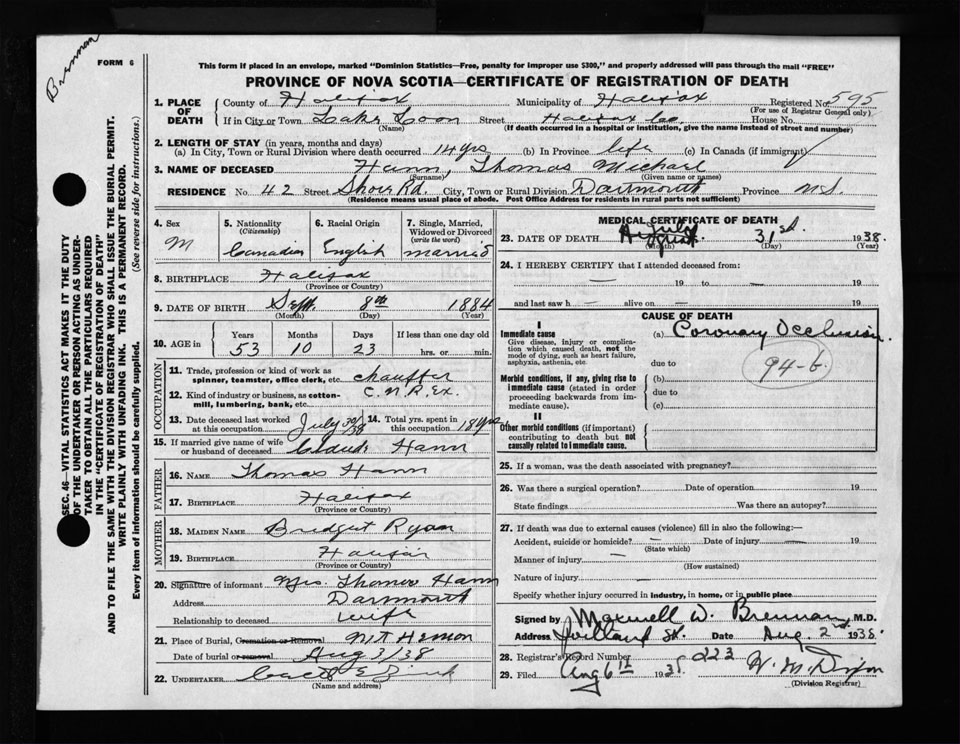 Brennan
FORM 6
This form if placed in an envelope, marked "Dominion Statistics—Free, penalty for improper use $300," and properly addressed will pass through the mail "FREE"
PROVINCE OF NOVA SCOTIA—CERTIFICATE OF REGISTRATION OF DEATH
SEC. 46—VITAL STATISTICS ACT MAKES IT THE DUTY
OF THE UNDERTAKER OR PERSON ACTING AS UNDER-
TAKER TO OBTAIN ALL THE PARTICULARS REQUIRED
IN THE "CERTIFICATE OF REGISTRATION OF DEATH"
AND TO FILE THE SAME WITH THE DIVISION REGISTRAR WHO SHALL ISSUE THE BURIAL PERMIT.
WRITE PLAINLY WITH UNFADING INK. THIS IS A PERMANENT RECORD.
Every item of information should be carefully supplied. (See reverse side for instructions.)
1. PLACE OF DEATH
County of Halifax Municipality of Halifax Registered No. 595
(For use of Registrar General only)
If in City or Town Lake Loon Street Halifax Co. House No.
(Name) (If death occurred in a hospital or institution, give the name instead of street and number)
2. LENGTH OF STAY (in years, months and days)
(a) In City, Town or Rural Division where death occurred 14 yrs (b) In Province life (c) In Canada (if immigrant)
3. NAME OF DECEASED Hann, Thomas Michael
(Surname) (Given name or names)
RESIDENCE No. 42 Street Shore Rd. City, Town or Rural Division Dartmouth Province N.S.
(Residence means usual place of abode. Post Office Address for residents in rural parts not sufficient)
4. Sex
M
5. Nationality
(Citizenship)
Canadian
6. Racial Origin
English
7. Single, Married, Widowed or Divorced
(write the word)
married
8. BIRTHPLACE Halifax
(Province or Country)
9. DATE OF BIRTH Sept. 8th 1884
(Month) (Day) (Year)
10. AGE in
Years Months Days If less than one day old
53 10 23 hrs. or min.
OCCUPATION
11. Trade, profession or kind of work as
spinner, teamster, office clerk, etc. chauffer
12. Kind of industry or business, as cotton-
mill, lumbering, bank, etc. C.N.R. Ex.
13. Date deceased last worked at this occupation July 30/38
14. Total yrs. spent in this occupation 18 yrs
15. If married give name of wife
or husband of deceased Hann
FATHER
16. NAME Thomas Hann
17. BIRTHPLACE Halifax
(Province or Country)
MOTHER
18. MAIDEN NAME Bridget Ryan
19. BIRTHPLACE Halifax
(Province or Country)
20. Signature of informant Mrs. Thomas Hann
Address Dartmouth
Relationship to deceased wife
21. Place of Burial, Cremation or Removal Mt Hermon
Date of burial or removal Aug 3/38
22. UNDERTAKER Zink
(Name and address)
MEDICAL CERTIFICATE OF DEATH
23. DATE OF DEATH August July 31st. 1938.
(Month) (Day) (Year)
24. I HEREBY CERTIFY that I attended deceased from:
— 19 to — 19
and last saw h — alive on — 19
CAUSE OF DEATH
I
Immediate cause
Give disease, injury or complica-
tion which caused death, not the
mode of dying, such as heart failure,
asphyxia, asthenia, etc.
(a) Coronary Occlusion.
94-b
due to
Morbid conditions, if any, giving rise to
immediate cause (stated in order
proceeding backwards from im-
mediate cause).
(b)
due to
(c)
II
Other morbid conditions (if important)
contributing to death but not
causally related to immediate cause.
25. If a woman, was the death associated with pregnancy?
26. Was there a surgical operation? Date of operation 19
State findings Was there an autopsy?
27. If death was due to external causes (violence) fill in also the following:—
Accident, suicide or homicide? — Date of injury — 19
(State which)
Manner of injury —
(How sustained)
Nature of injury —
Specify whether injury occurred in industry, in home, or in public place
Signed by Maxwell W. Brennan, M.D.
Address Portland St. Date Aug. 2nd. 1938.
28. Registrar's Record Number 223
29. Filed Aug 6th 1938 W. M. Dixon
(Division Registrar)